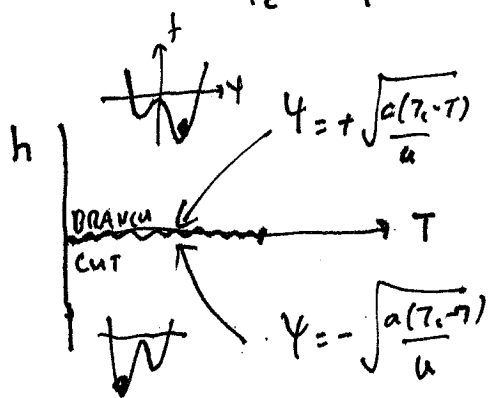 f
ψ
ψ = + √(a(Tc-T)/u)
h
BRANCH
CUT
T
ψ = - √(a(Tc-T)/u)